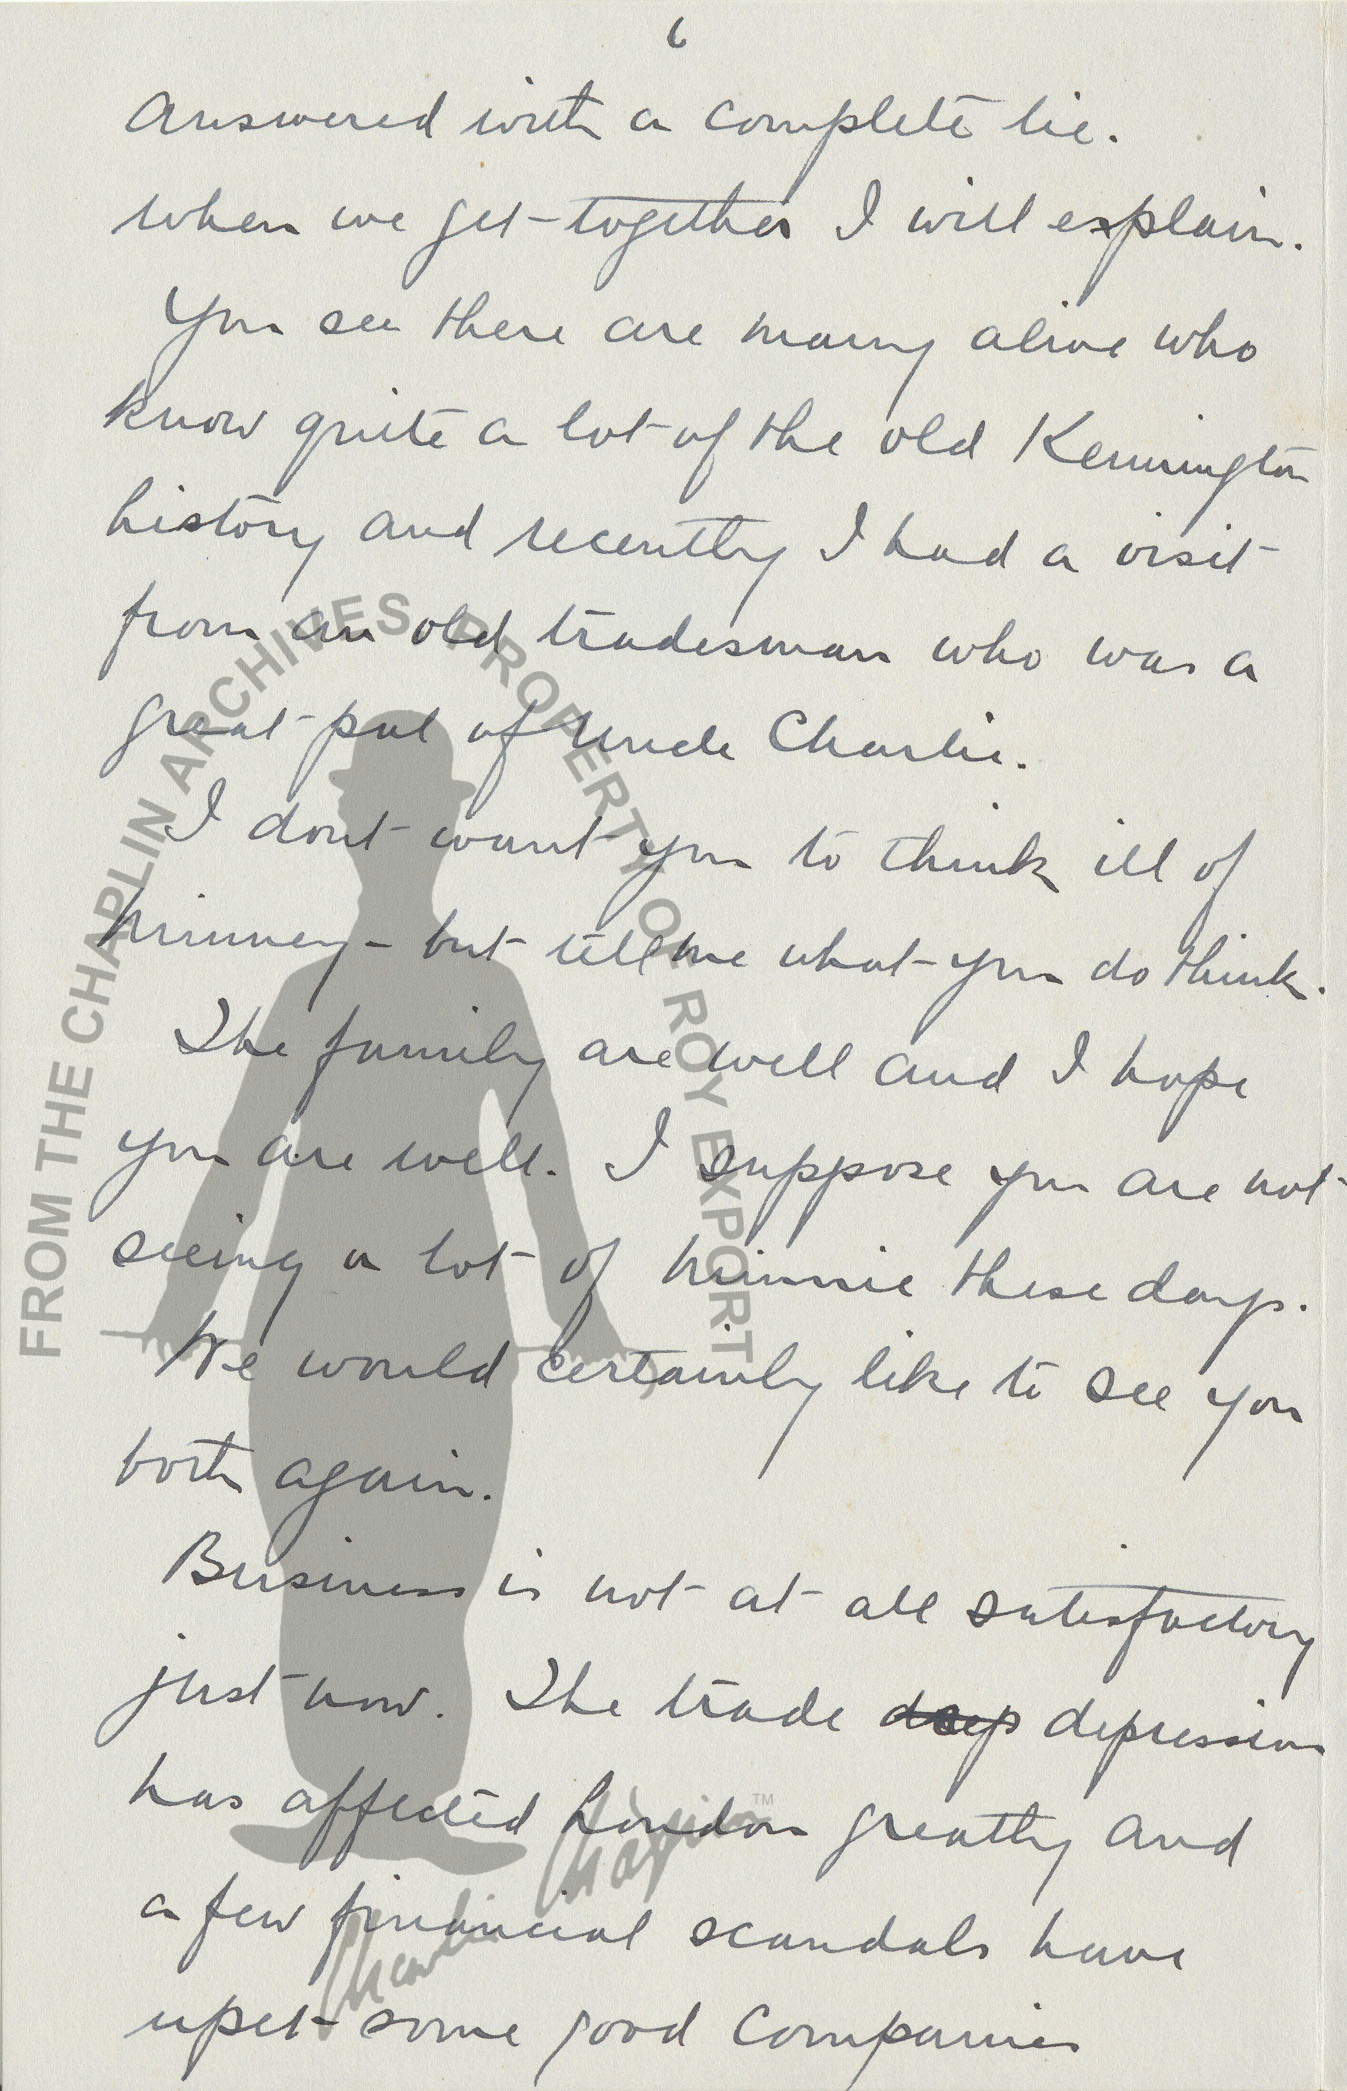 6
answered with a complete lie.
when we get together I will explain.
You see there are many alive who
know quite a lot of the old Kennington
history and recently I had a visit
from an old tradesman who was a
great pal of Uncle Charlie.
I dont want you to think ill of
Minney - but tell me what you do think.
The family are well and I hope
you are well. I suppose you are not
seeing a lot of Minnie these days.
We would certainly like to see you
both again.
Business is not at all satisfactory
just now. The trade dep depression
has affected London greatly and
a few financial scandals have
upset some good Companies
FROM THE CHAPLIN ARCHIVES PROPERTY OF ROY EXPORT
Charlie Chaplin TM